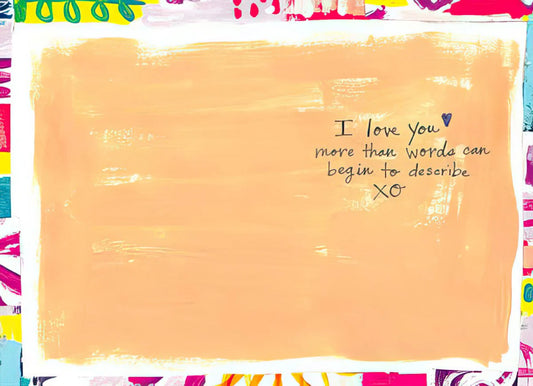 I love you
more than words can
begin to describe
XO